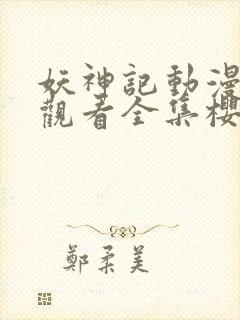 妖神記動漫
觀看全集櫻
鄭柔美